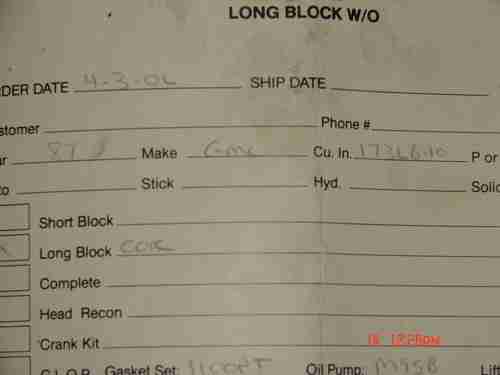 LONG BLOCK W/O
RDER DATE 4-3-06 SHIP DATE
stomer Phone #
ar 87 Make GMC Cu. In. 173 P or
to Stick Hyd. Solid
Short Block
X Long Block CORE
Complete
Head Recon
Crank Kit
C.L.O.P. Gasket Set: 1100PT Oil Pump: M95B Lift